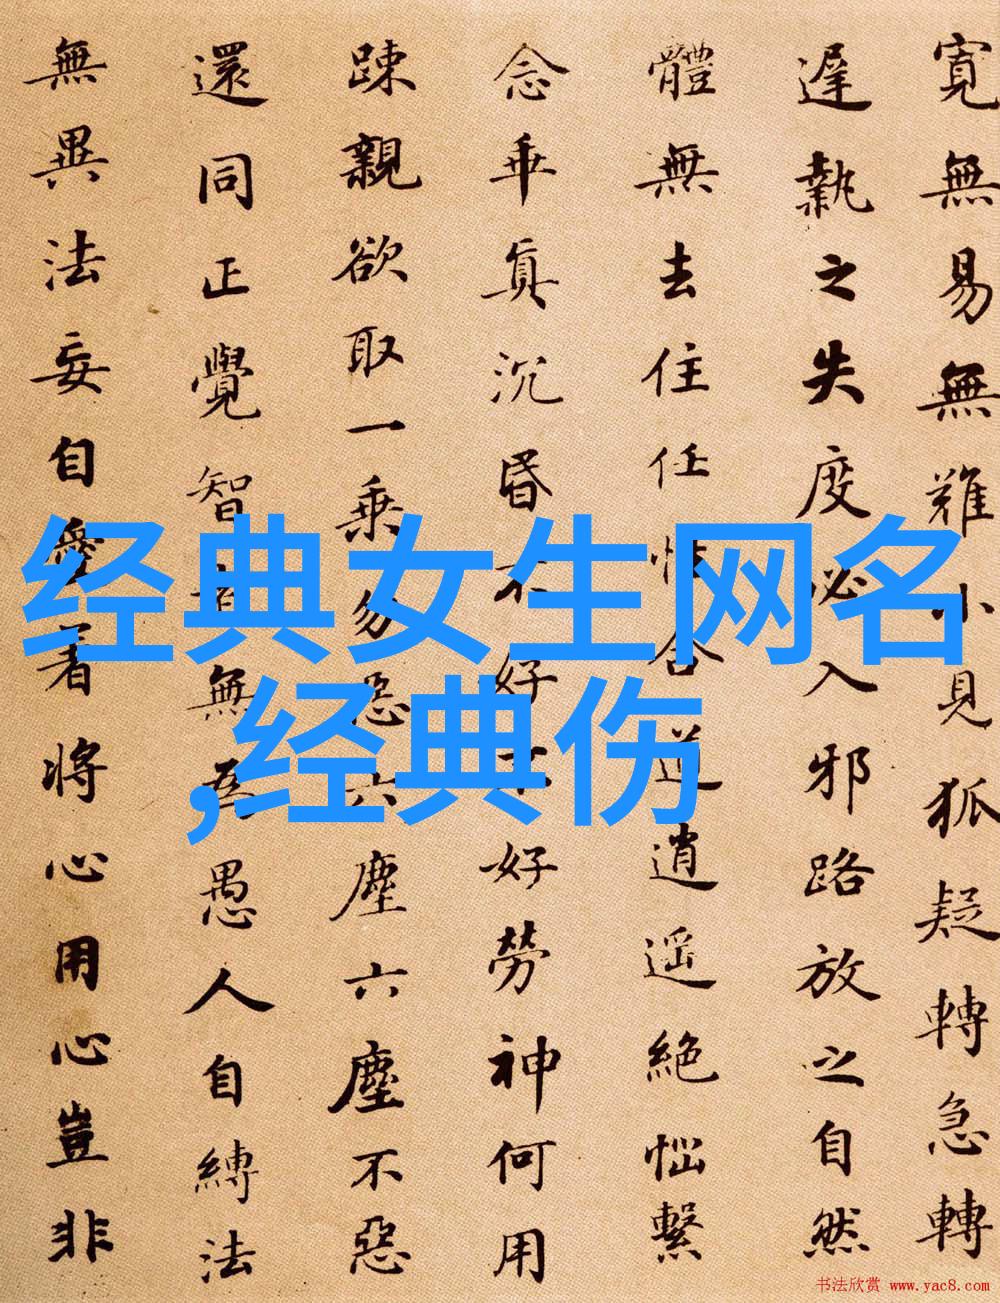 寬無易無難小見狐疑轉急轉
遲執之失度必入邪路放之自然
體無去住任性合道逍遥絕惱繫
念乖真沉昏不好不好勞神何用
踈親欲取一乘勿惡六塵六塵不惡
還同正覺智者無為愚人自縛法
無異法妄自愛著将心用心豈非
经典女生网名
,经典伤
书法欣赏 www.yac8.com